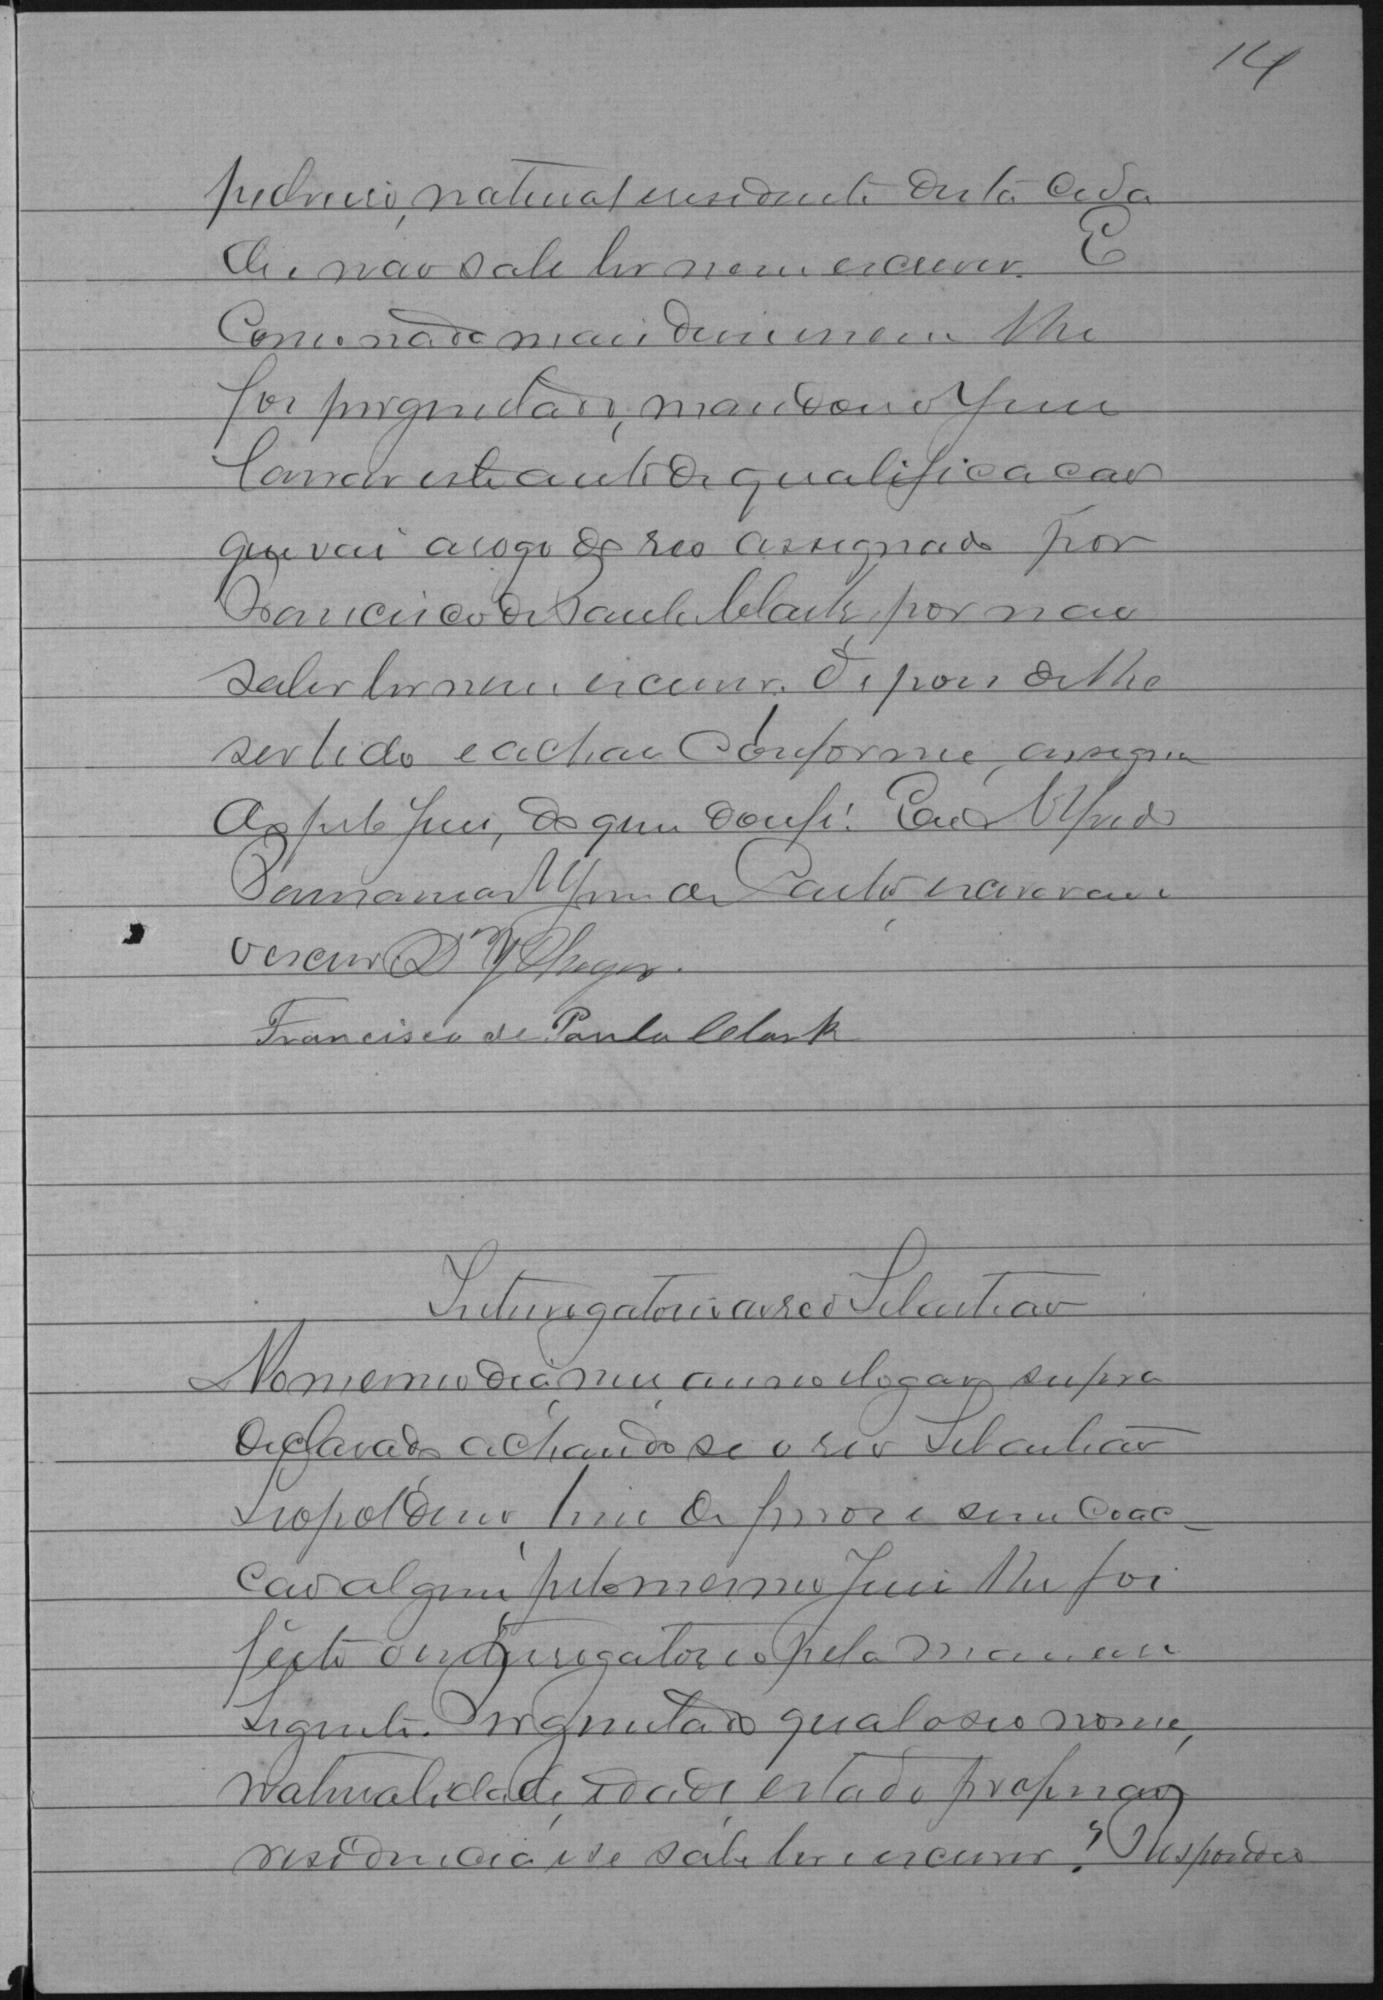 14
pedreiro, natural e residente desta cida
de e não sabe ler nem escrever. E
Como nada mais disse nem lhe
foi perguntado, mandou o Juiz
lavrar este auto de qualificacão
que vai a rogo do reo assignado por
Francisco de Paula Clark, por não
saber ler nem escrever. Depois de lhe
ser lido e achar Conforme, assigna
do pelo Juiz, do que dou fé. Eu Alfredo
de escrivão
o escrevi
Francisco de Paula Clark
Interrogatorio ao reo Sebastião
No mesmo dia, mez, anno e logar supra
declarado achando se o reo Sebastião
Leopoldino, livre de ferros e sem coac-
cão alguma pelo mesmo Juiz lhe foi
feito o interrogatorio pela maneira
seguinte. Perguntado qual o seo nome,
naturalidade, idade estado profissão
residencia e se sabe ler e escrever? Respondeo